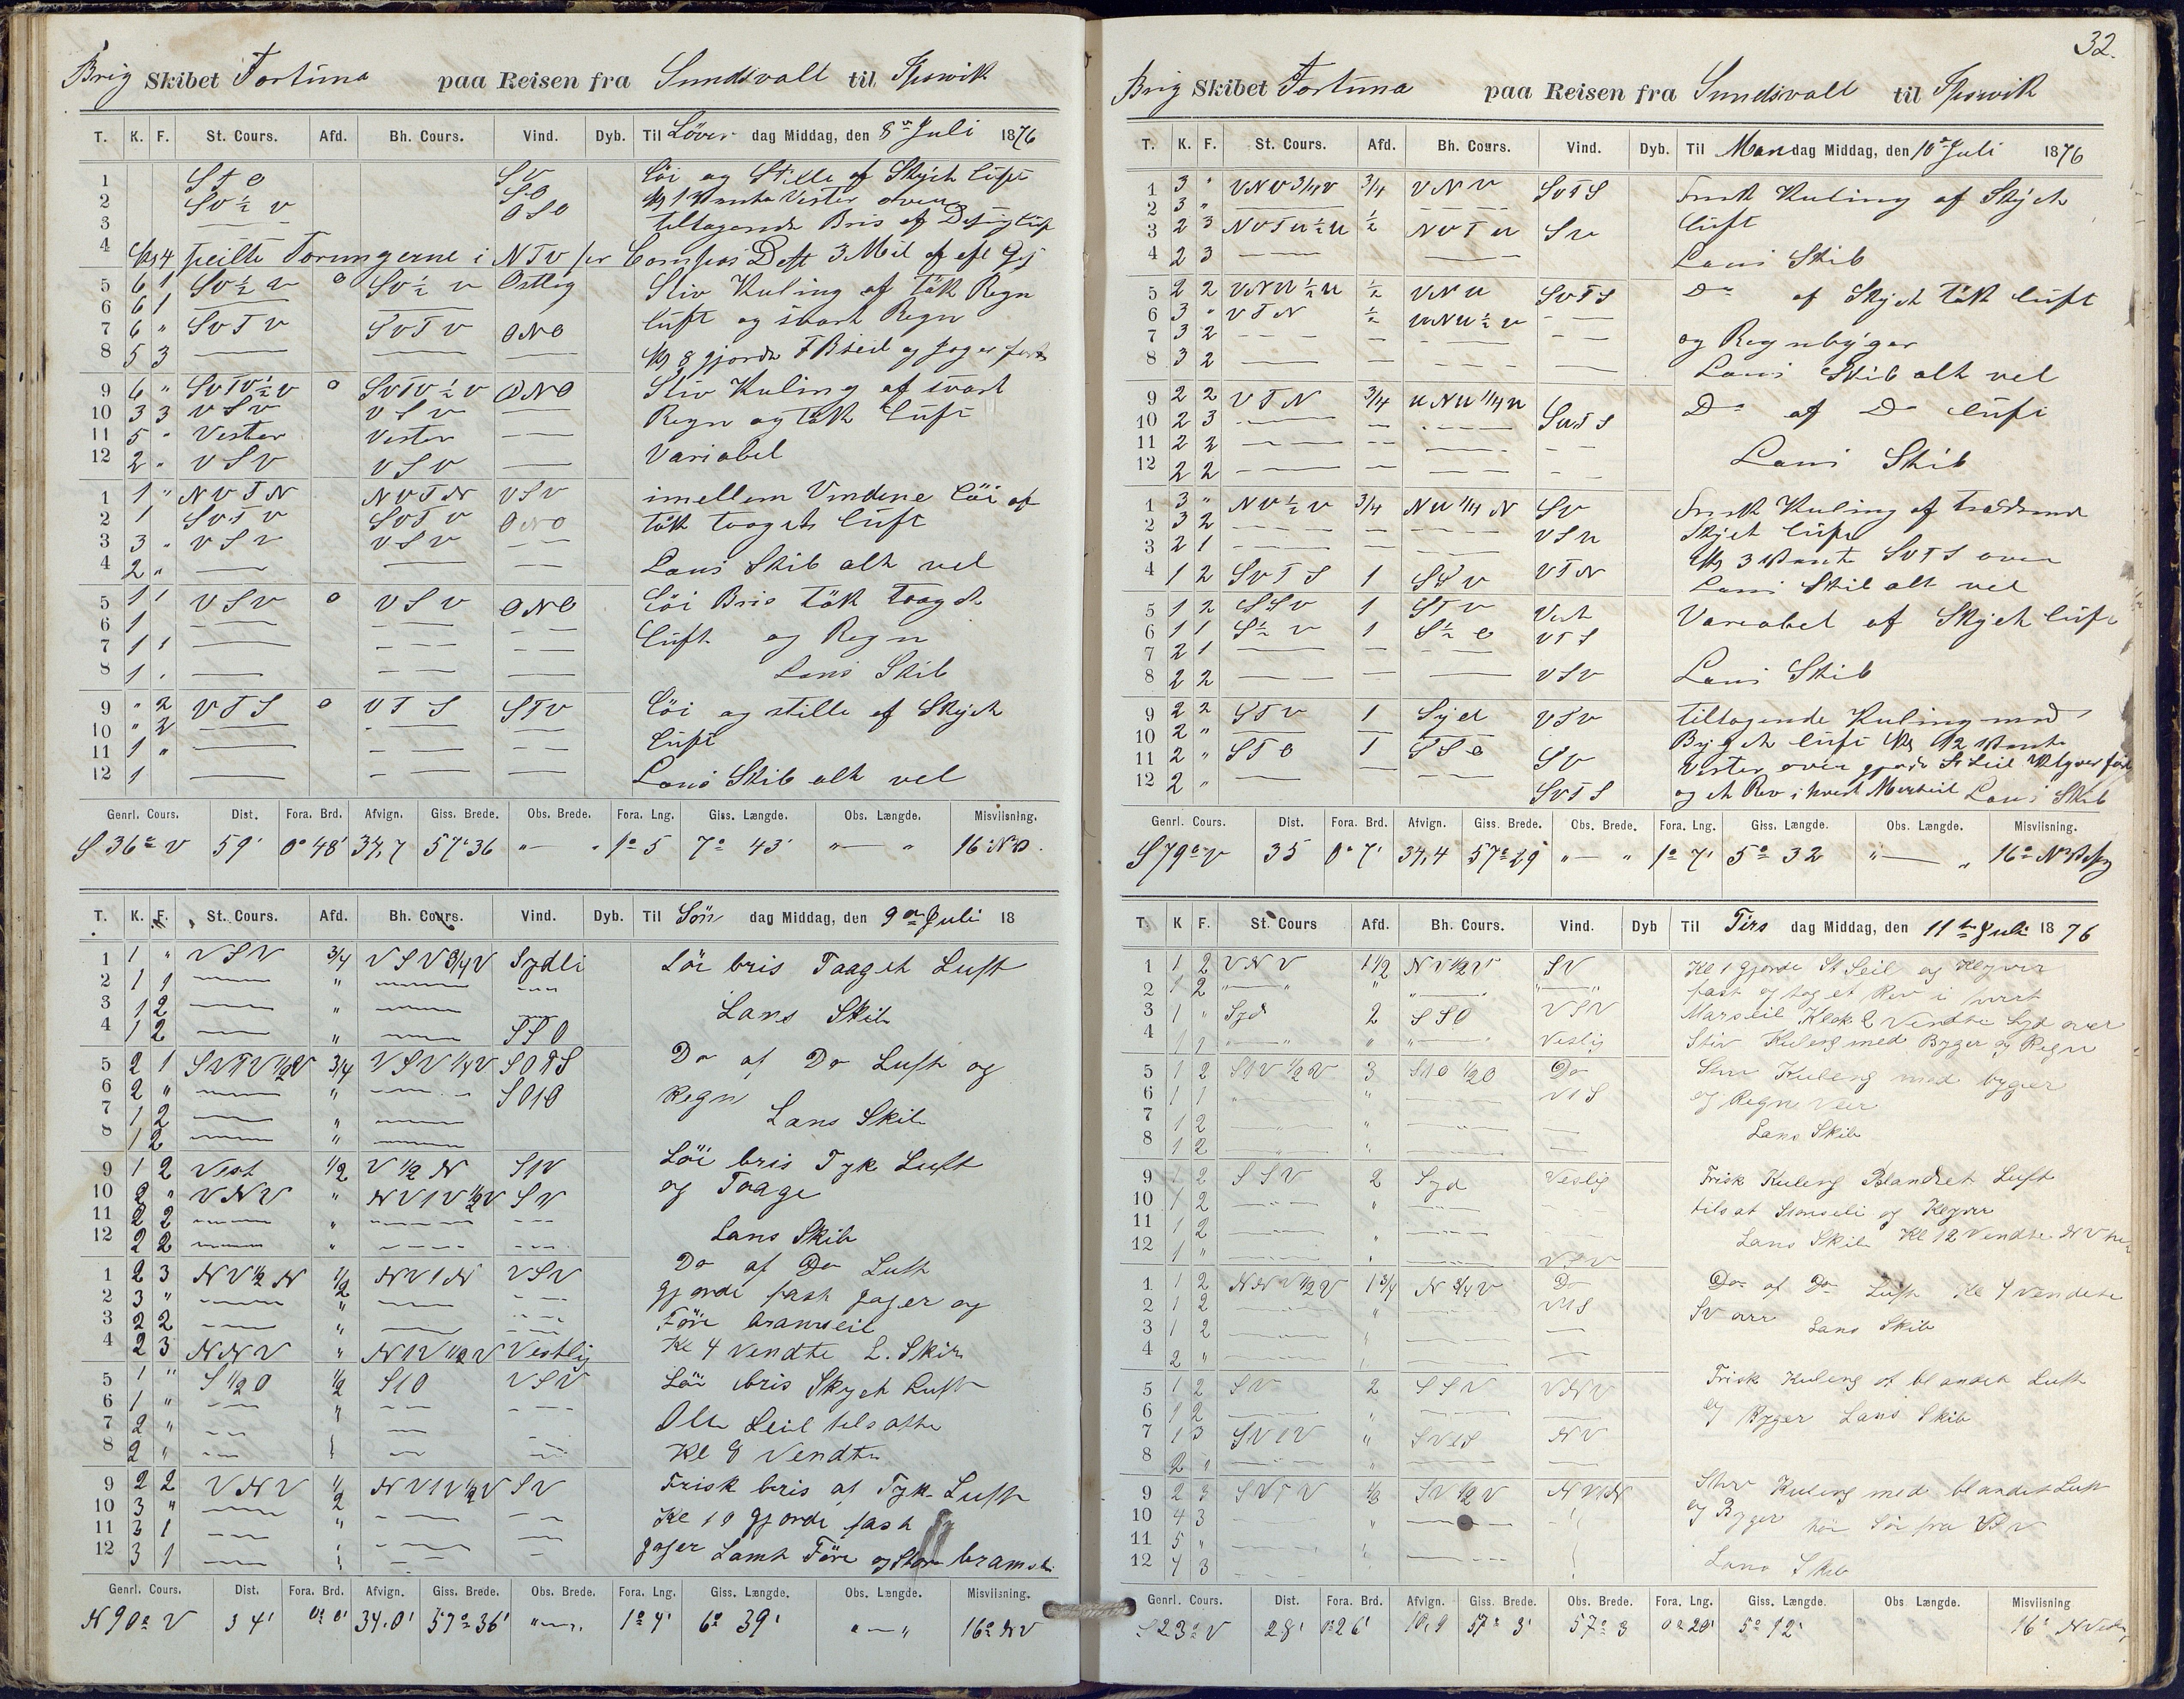 Brig Skibet Fortuna paa Reisen fra Sundsvall til
T. K. F. St. Cours. Afd. Bh. Cours. Vind. Dyb. Til Löver dag Middag, den 8de Juli 1876
1 STO SV Löi og Stille af Skyet Luft
2 SV ½ V SO
3 — OSO tiltagende Bris af
4 Kl 4 peilte Torungerne i NTV per Compas Dest 3 Mil
5 6 1 SV ½ V 0 SV ½ V Ostlig Stiv Kuling af tök Regn
6 6 1 — —
7 6 " SVTV SVTV ONO luft og svart Regn
8 5 3 — — — Kl 8 gjorde F B Seil og Jager fast
9 6 " SVTV ½ V 0 SVTV ½ V ONO Stiv Kuling af svart
10 3 3 VSV VSV — Regn og tök Luft
11 5 " Vester Vester —
12 2 " VSV VSV — Variabel
1 1 " NVTN NVTN VSV imellem Vindene Löi af
2 1 SVTV SVTV ONO tök taaget luft
3 3 " VSV VSV — —
4 2 " — — — Lans Skib alt vel
5 1 1 VSV 0 VSV ONO Löi Bris tök taaget
6 1 — — —
7 1 1 — — — luft og Regn
8 1 . — — — Lans Skib
9 " 2 VTS 0 VTS STV Löi og stille af Skyet
10 " 2 — — —
11 1 " — — — luft
12 1 — — — Lans Skib alt vel
Genrl. Cours. Dist. Fora. Brd. Afvign. Giss. Brede. Obs. Brede. Fora. Lng. Giss. Længde. Obs. Længde. Misviisning.
S 36° V 59' 0° 48' 34,7 57°36 " — " 1° 5 7° 43' " — " 16° NV.
T. K. F. St. Cours. Afd. Bh. Cours. Vind. Dyb. Til Sön dag Middag, den 9de Juli 18
1 1 " VSV 3/4 VSV 3/4 V Sydli Löi bris Taaget Luft
2 1 1 — " — —
3 1 2 — " — Lans Skib
4 1 2 — " — SSO
5 2 1 SVTV 1/2 V 3/4 VSV 1/4 V SOTS Do af Do Luft og
6 2 " — " — SOTO Regn
7 1 2 — " — Lans Skib
8 1 2 — " —
9 1 2 Vest 1/2 V 1/2 N STV Löi bris Tyk Luft
10 2 " VNV " NVTV 1/2 V SV og Taage
11 2 2 — " — —
12 2 2 — " — — Lans Skib
1 2 3 NV 1/2 N 1/2 NVTN VSV Do af Do Luft
2 3 " — " — — gjorde fast Jager og
3 2 2 — " — — Före bramseil
4 2 3 NNV " NTV 1/2 V Vestlig Kl 4 vendte L. Skib
5 1 " S 1/2 O 1/2 STO VSV Löi bris Skyet Luft
6 1 " — " — —
7 2 " — — Alle Seil tilsatte
8 2 " — — — Kl 8 Vendte
9 2 2 VNV 1/2 NVTV 1/2 V SV Frisk bris af Tyk Luft
10 3 " — " — — Kl 10 gjorde fast
11 3 1 — — —
12 3 1 — — — Jager Samt Före og Store bramseil
Genrl. Cours. Dist. Fora. Brd. Afvign. Giss. Brede. Obs. Brede. Fora. Lng. Giss. Længde. Obs. Længde. Misviisning.
N 90° V 34' 0° 0' 34.0' 57° 36' " — " 1° 4' 6° 39' " — " 16° NV
32.
Brig Skibet Fortuna paa Reisen fra Sundsvall til
T. K. F. St. Cours. Afd. Bh. Cours. Vind. Dyb. Til Mandag Middag, den 10de Juli 1876
1 3 " VNV 3/4 V 3/4 VNV SVTS Frisk Kuling af Skyet
2 3 " — —
3 2 3 NVTV ½ V ½ NVTV SV luft
4 2 3 — — Lans Skib
5 2 2 VNV ½ V ½ VNV SVTS Do af Skyet tök luft
6 3 " VTN ½ VNV ½ V — —
7 3 2 — — — — og Regnbyger
8 3 2 — — — — Lans Skib alt vel
9 2 2 VTN 3/4 VNV 1/4 V Do af Do luft
10 2 3 — — — SVTS
11 2 2 — — — —
12 2 2 — — — — Lans Skib
1 3 " NV ½ V 3/4 NV 1/4 N SV Frisk Kuling af
2 3 2 — — — Skyet luft
3 2 1 — — — VSV Kl 3 Vente SVTS over
4 1 2 SVTS 1 SSV VTN Lans Skib alt vel
5 1 2 SSV 1 STV Vest Variabel af Skyet luft
6 1 1 S½ V 1 S½ O VTS
7 2 1 — — —
8 2 2 — — — VSV Lans Skib
9 2 2 STV 1 Syd VSV tiltagende Kuling med
10 2 " — — Byget luft Kl 12 Vente
11 2 " STO 1 SSO SV Vester over gjorde St Seil Klyver fast
12 2 " — — — SVTS og et Rev i hvert Merseil Lans Skib
Genrl. Cours. Dist. Fora. Brd. Afvign. Giss. Brede. Obs. Brede. Fora. Lng. Giss. Længde. Obs. Længde. Misviisning.
S 79° V 35 0° 7' 34,4 57° 29' " — " 1° 7' 5° 32 " — " 16°
T. K F. St. Cours Afd. Bh. Cours. Vind. Dyb Til Tirs dag Middag, den 11te Juli 1876
1 1 2 VNV 1 1/2 NV 1/2 V SV Kl 1 gjorde St Seil og Klyver
2 1 2 " — " " " — " " — " fast og tog et Rev i vært
3 1 " Syd 2 SSO VSV Marseil Klok 2 Vendte Syd over
4 1 1 " — " " " — " Veslig Stiv Kuleng med Byger og Regn
5 1 2 STV 1/2 V 3 STO 1/2 O Do Stiv Kuleng med byger
6 1 1 " " — VTS og Regn Veer
7 1 2 — " — —
8 1 2 — " — — Lans Skib
9 1 2 SSV 2 Syd Veslig Frisk Kuleng Blandet Luft
10 1 2 — " — — tilsat Storseil og Klyver
11 1 2 — — —
12 1 " — " — VSV Lans Skib Kl 12 Vendte NV
1 1 2 NNV 1/2 V 1 3/4 N 3/4 V Do Do af Do Luft Kl 4 vendete
2 1 2 — " — VTS SV over
3 1 2 — — — Lans Skib
4 2 " — " — —
5 1 2 SV 2 SSV VNV Frisk Kuleng af blandet Luft
6 1 2 — " — og Byger Lans Skib
7 1 3 SVTV " SVTS NV
8 2 " — " — —
9 2 3 SVTV 1/2 SV 1/2 V NVTN Stiv Kuleng med blandet Luft
10 4 3 — " — og Byger
11 5 " — " — hör Sör fra VSV
12 4 3 — — Lans Skib
Genrl. Cours. Dist. Fora. Brd. Afvign. Giss. Brede. Obs. Brede. Fora. Lng. Giss. Længde. Obs Længde. Misviisning
S 23° V 28' 0° 26' 10,9 57° 3' 57° 3 0° 20' 5° 12' 16°